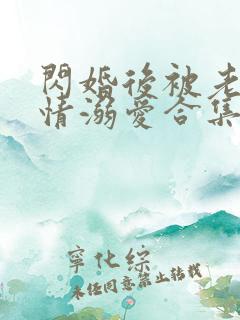 閃婚後被老
情溺愛合集
寧化綜
未經同意禁止轉載